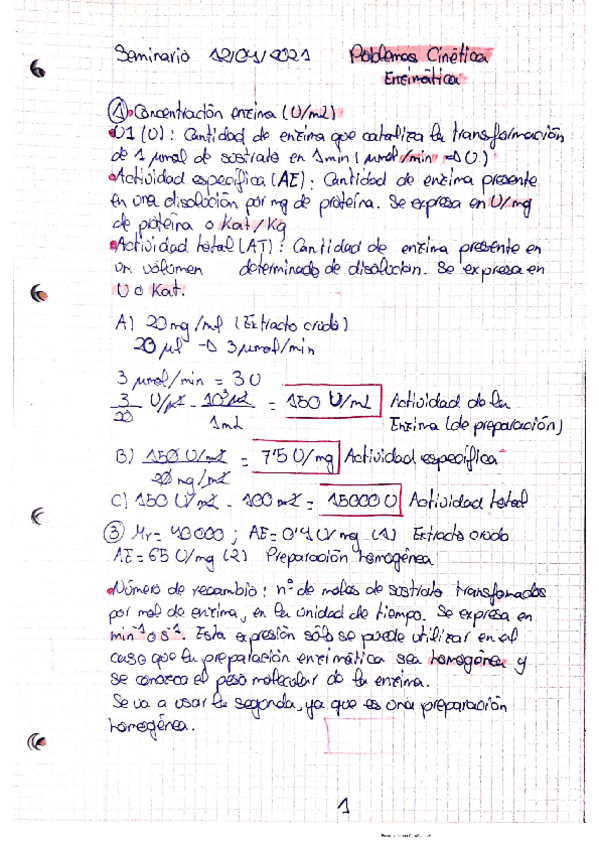 Seminario 12/04/2021 Problemas Cinética
Enzimática
① Concentración enzima (U/mL)
U1 (U): Cantidad de enzima que cataliza la transformación
de 1 μmol de sustrato en 1 min (μmol/min → U.)
Actividad específica (AE): Cantidad de enzima presente
en una disolución por mg de proteína. Se expresa en U/mg
de proteína o Kat/Kg
Actividad total (AT): Cantidad de enzima presente en
un volúmen determinado de disolución. Se expresa en
U o Kat.
A) 20 mg/ml (Extracto crudo)
20 μl → 3 μmol/min
3 μmol/min = 3 U
3/20 U/μl · 10³ μl/1 mL = 150 U/mL Actividad de la
Enzima (de preparación)
B) 150 U/mL / 20 mg/mL = 7'5 U/mg Actividad específica
C) 150 U/mL · 100 mL = 15000 U Actividad total
③ Mr = 40000; AE = 0'1 U/mg (1) Extracto crudo
AE = 65 U/mg (2) Preparación homogénea
Número de recambio: nº de moles de sustrato transfomados
por mol de enzima, en la unidad de tiempo. Se expresa en
min⁻¹ o s⁻¹. Esta expresión sólo se puede utilizar en el
caso que la preparación enzimática sea homogénea y
se conozca el peso molecular de la enzima.
Se va a usar la segunda, ya que es una preparación
homogénea.
1